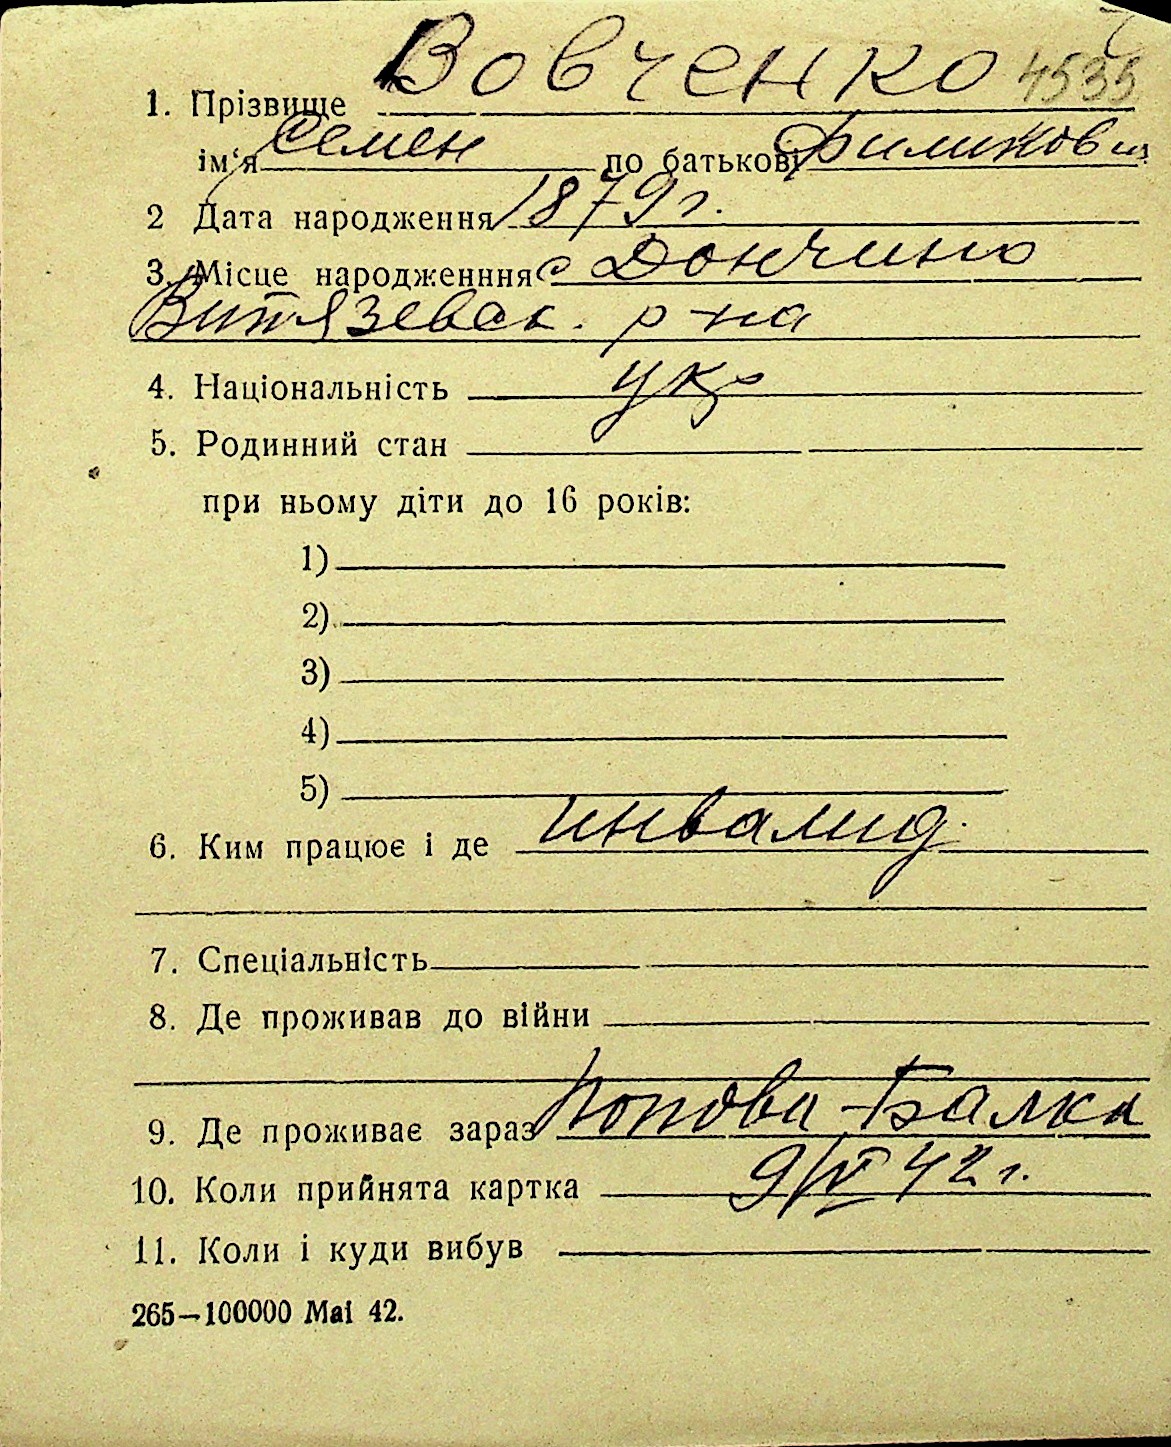 1. Прізвище Вовченко 4535
ім'я Семен по батькові Филиков
2 Дата народження 1879 г.
3. Місце народженння с Дончино
Витязевск. р-на
4. Національність укр
5. Родинний стан
при ньому діти до 16 років:
1)
2)
3)
4)
5)
6. Ким працює і де инвалид.
7. Спеціальність
8. Де проживав до війни
9. Де проживає зараз Попова-Балка
10. Коли прийнята картка 42 г.
11. Коли і куди вибув
265—100000 Mai 42.